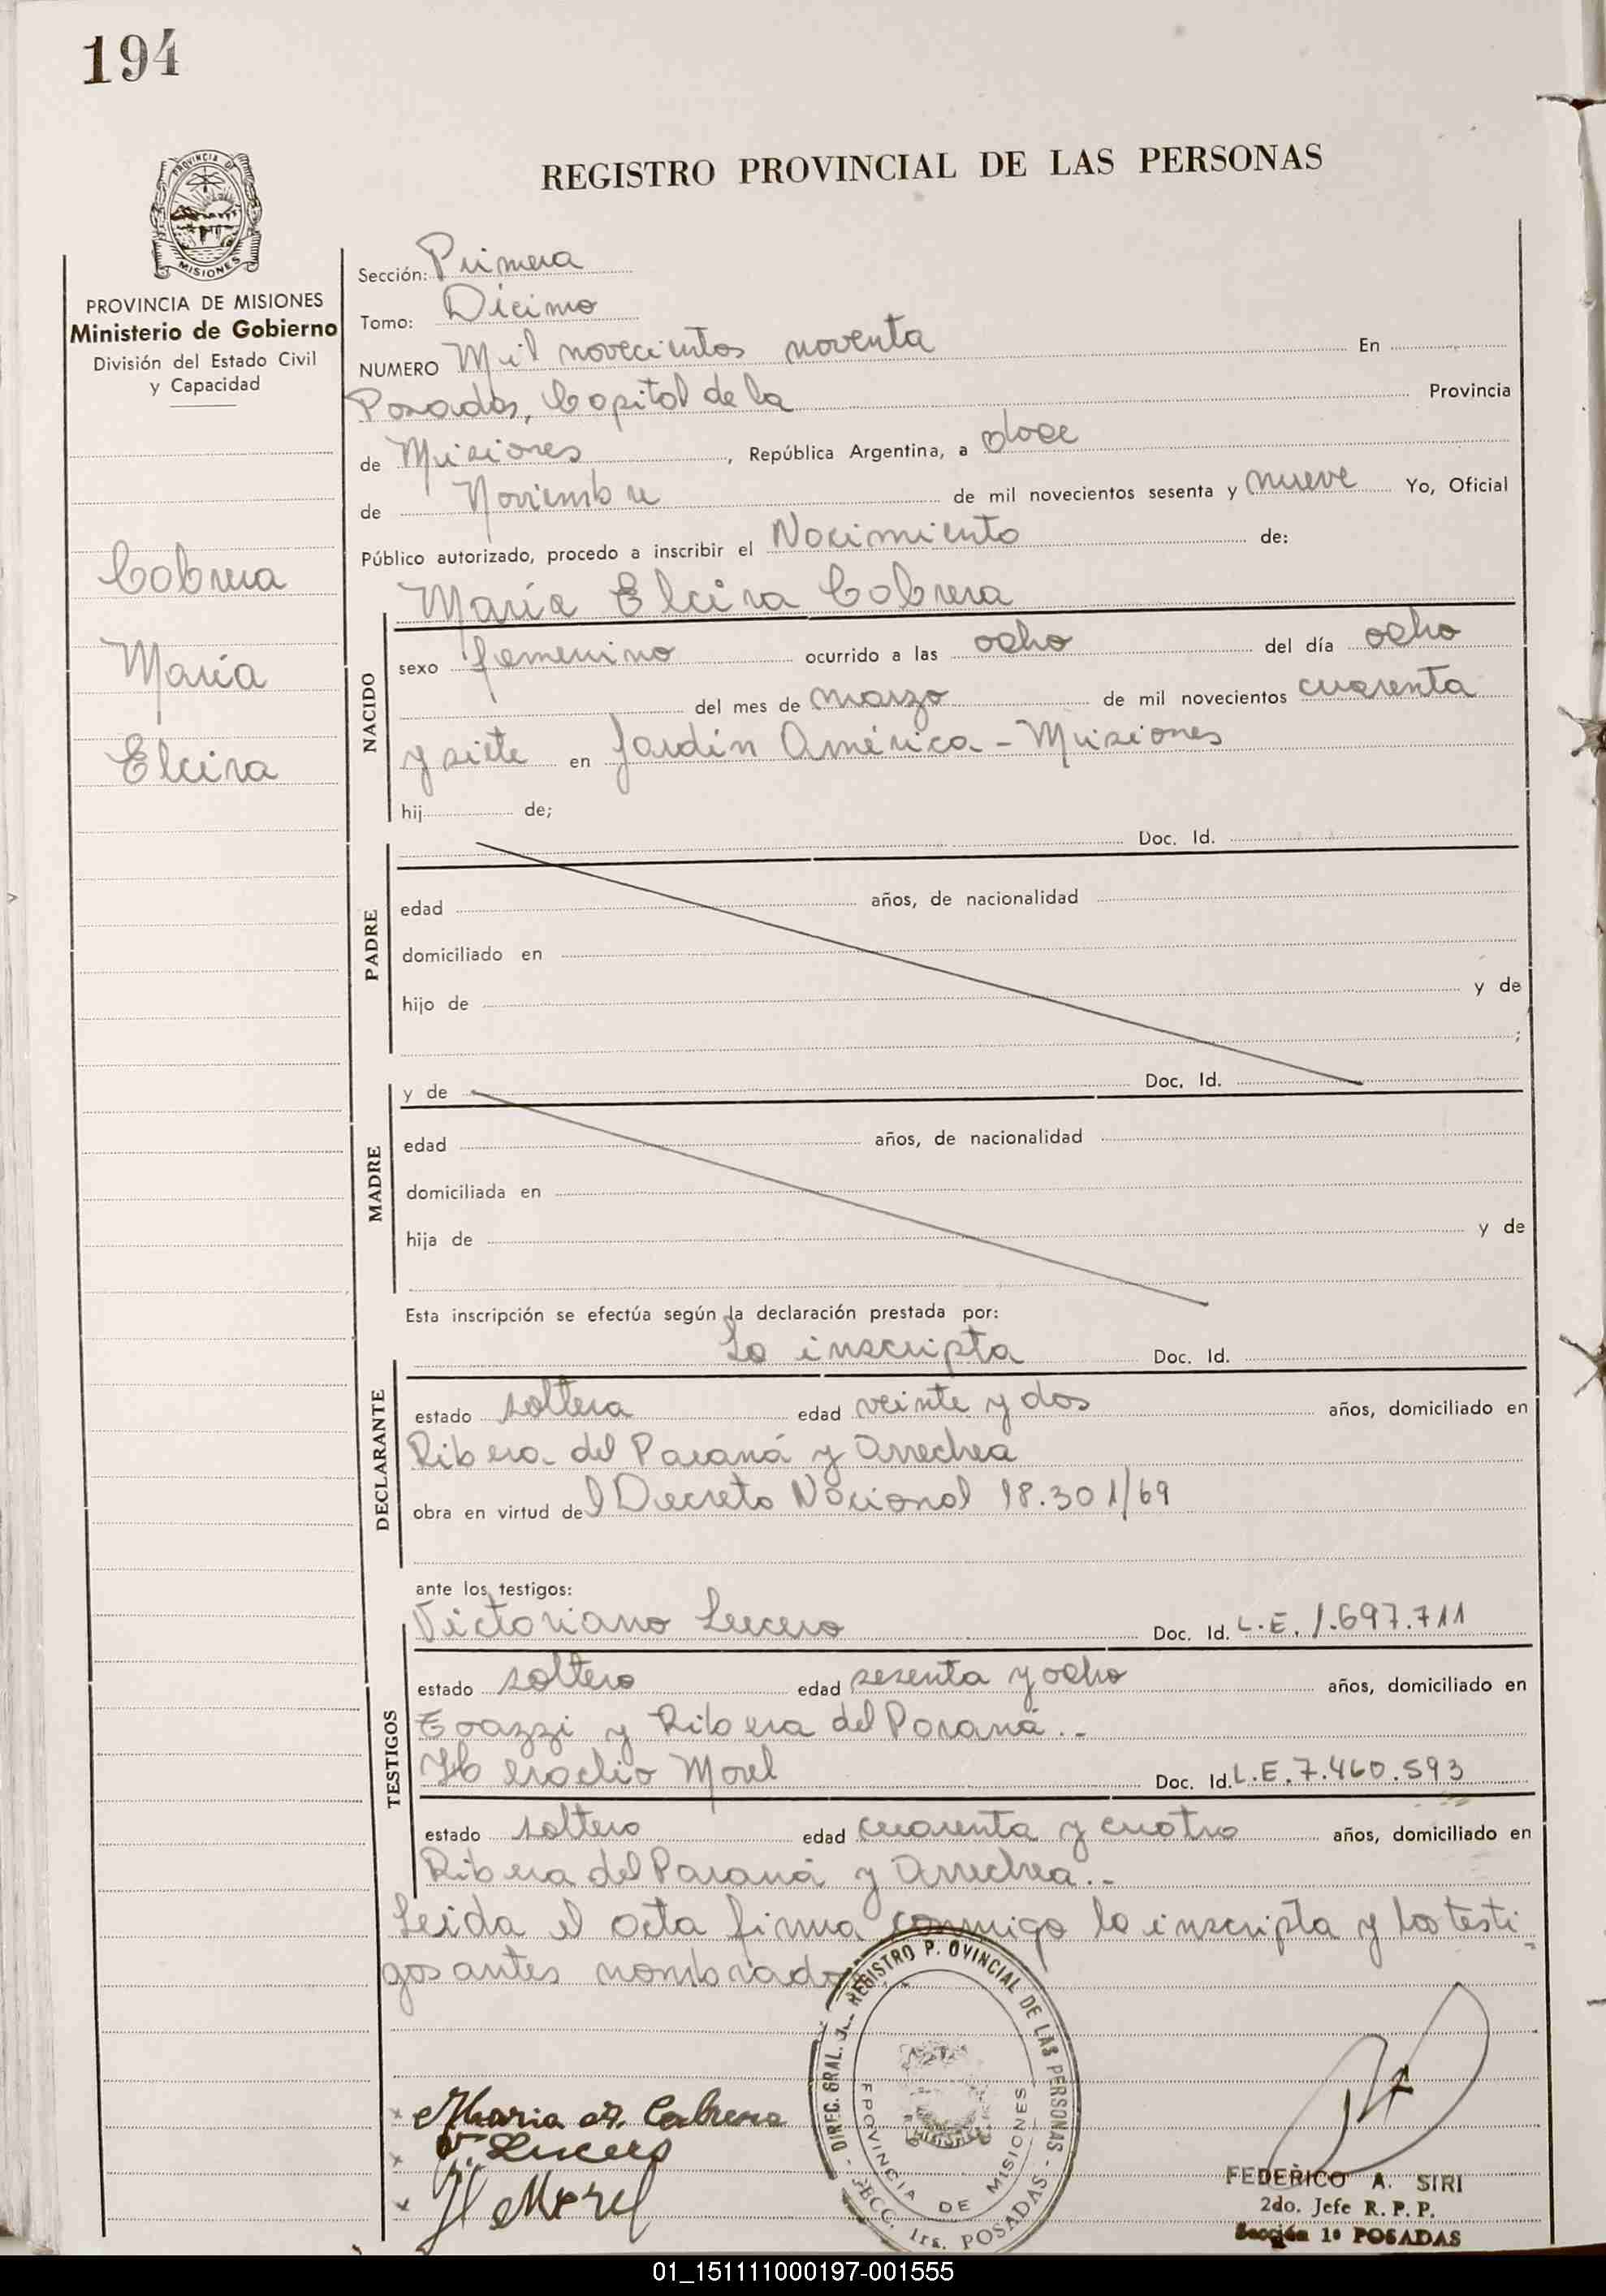 194
PROVINCIA DE
MISIONES
REGISTRO PROVINCIAL DE LAS PERSONAS
PROVINCIA DE MISIONES
Ministerio de Gobierno
División del Estado Civil
y Capacidad
Cabrera
María
Elcira
Sección: Primera
Tomo: Décimo
NUMERO Mil novecientos noventa En
Posadas, Capital de la Provincia
de Misiones, República Argentina, a doce
de Noviembre de mil novecientos sesenta y nueve Yo, Oficial
Público autorizado, procedo a inscribir el Nacimiento de:
María Elcira Cabrera
NACIDO
sexo femenino ocurrido a las ocho del día ocho
del mes de marzo de mil novecientos cuarenta
y siete en Jardín América - Misiones
hij de;
PADRE
Doc. Id.
edad años, de nacionalidad
domiciliado en
hijo de y de
;
MADRE
y de Doc. Id.
edad años, de nacionalidad
domiciliada en
hija de y de
Esta inscripción se efectúa según la declaración prestada por:
DECLARANTE
La inscripta Doc. Id.
estado soltera edad veinte y dos años, domiciliado en
Ribera del Paraná y Arrechea
obra en virtud del Decreto Nacional 18.301/69
ante los testigos:
TESTIGOS
Victoriano Lucero Doc. Id. L.E. 1.697.711
estado soltero edad sesenta y ocho años, domiciliado en
y Ribera del Paraná..-
Heraclio Morel Doc. Id. L.E. 7.460.593
estado soltero edad cuarenta y cuatro años, domiciliado en
Ribera del Paraná y Arrechea..-
Leida el acta firma conmigo la inscripta y los testi-
gos antes nombrados..-
x Maria E. Cabrera
x V. Lucero
x H Morel
DIREC. GRAL. REGISTRO P. OVINCIAL DE LAS PERSONAS -
PROVINCIA DE MISIONES
- SECC. 1ra. POSADAS -
FEDERICO A. SIRI
2do. Jefe R. P. P.
Sección 1º POSADAS
01_151111000197-001555